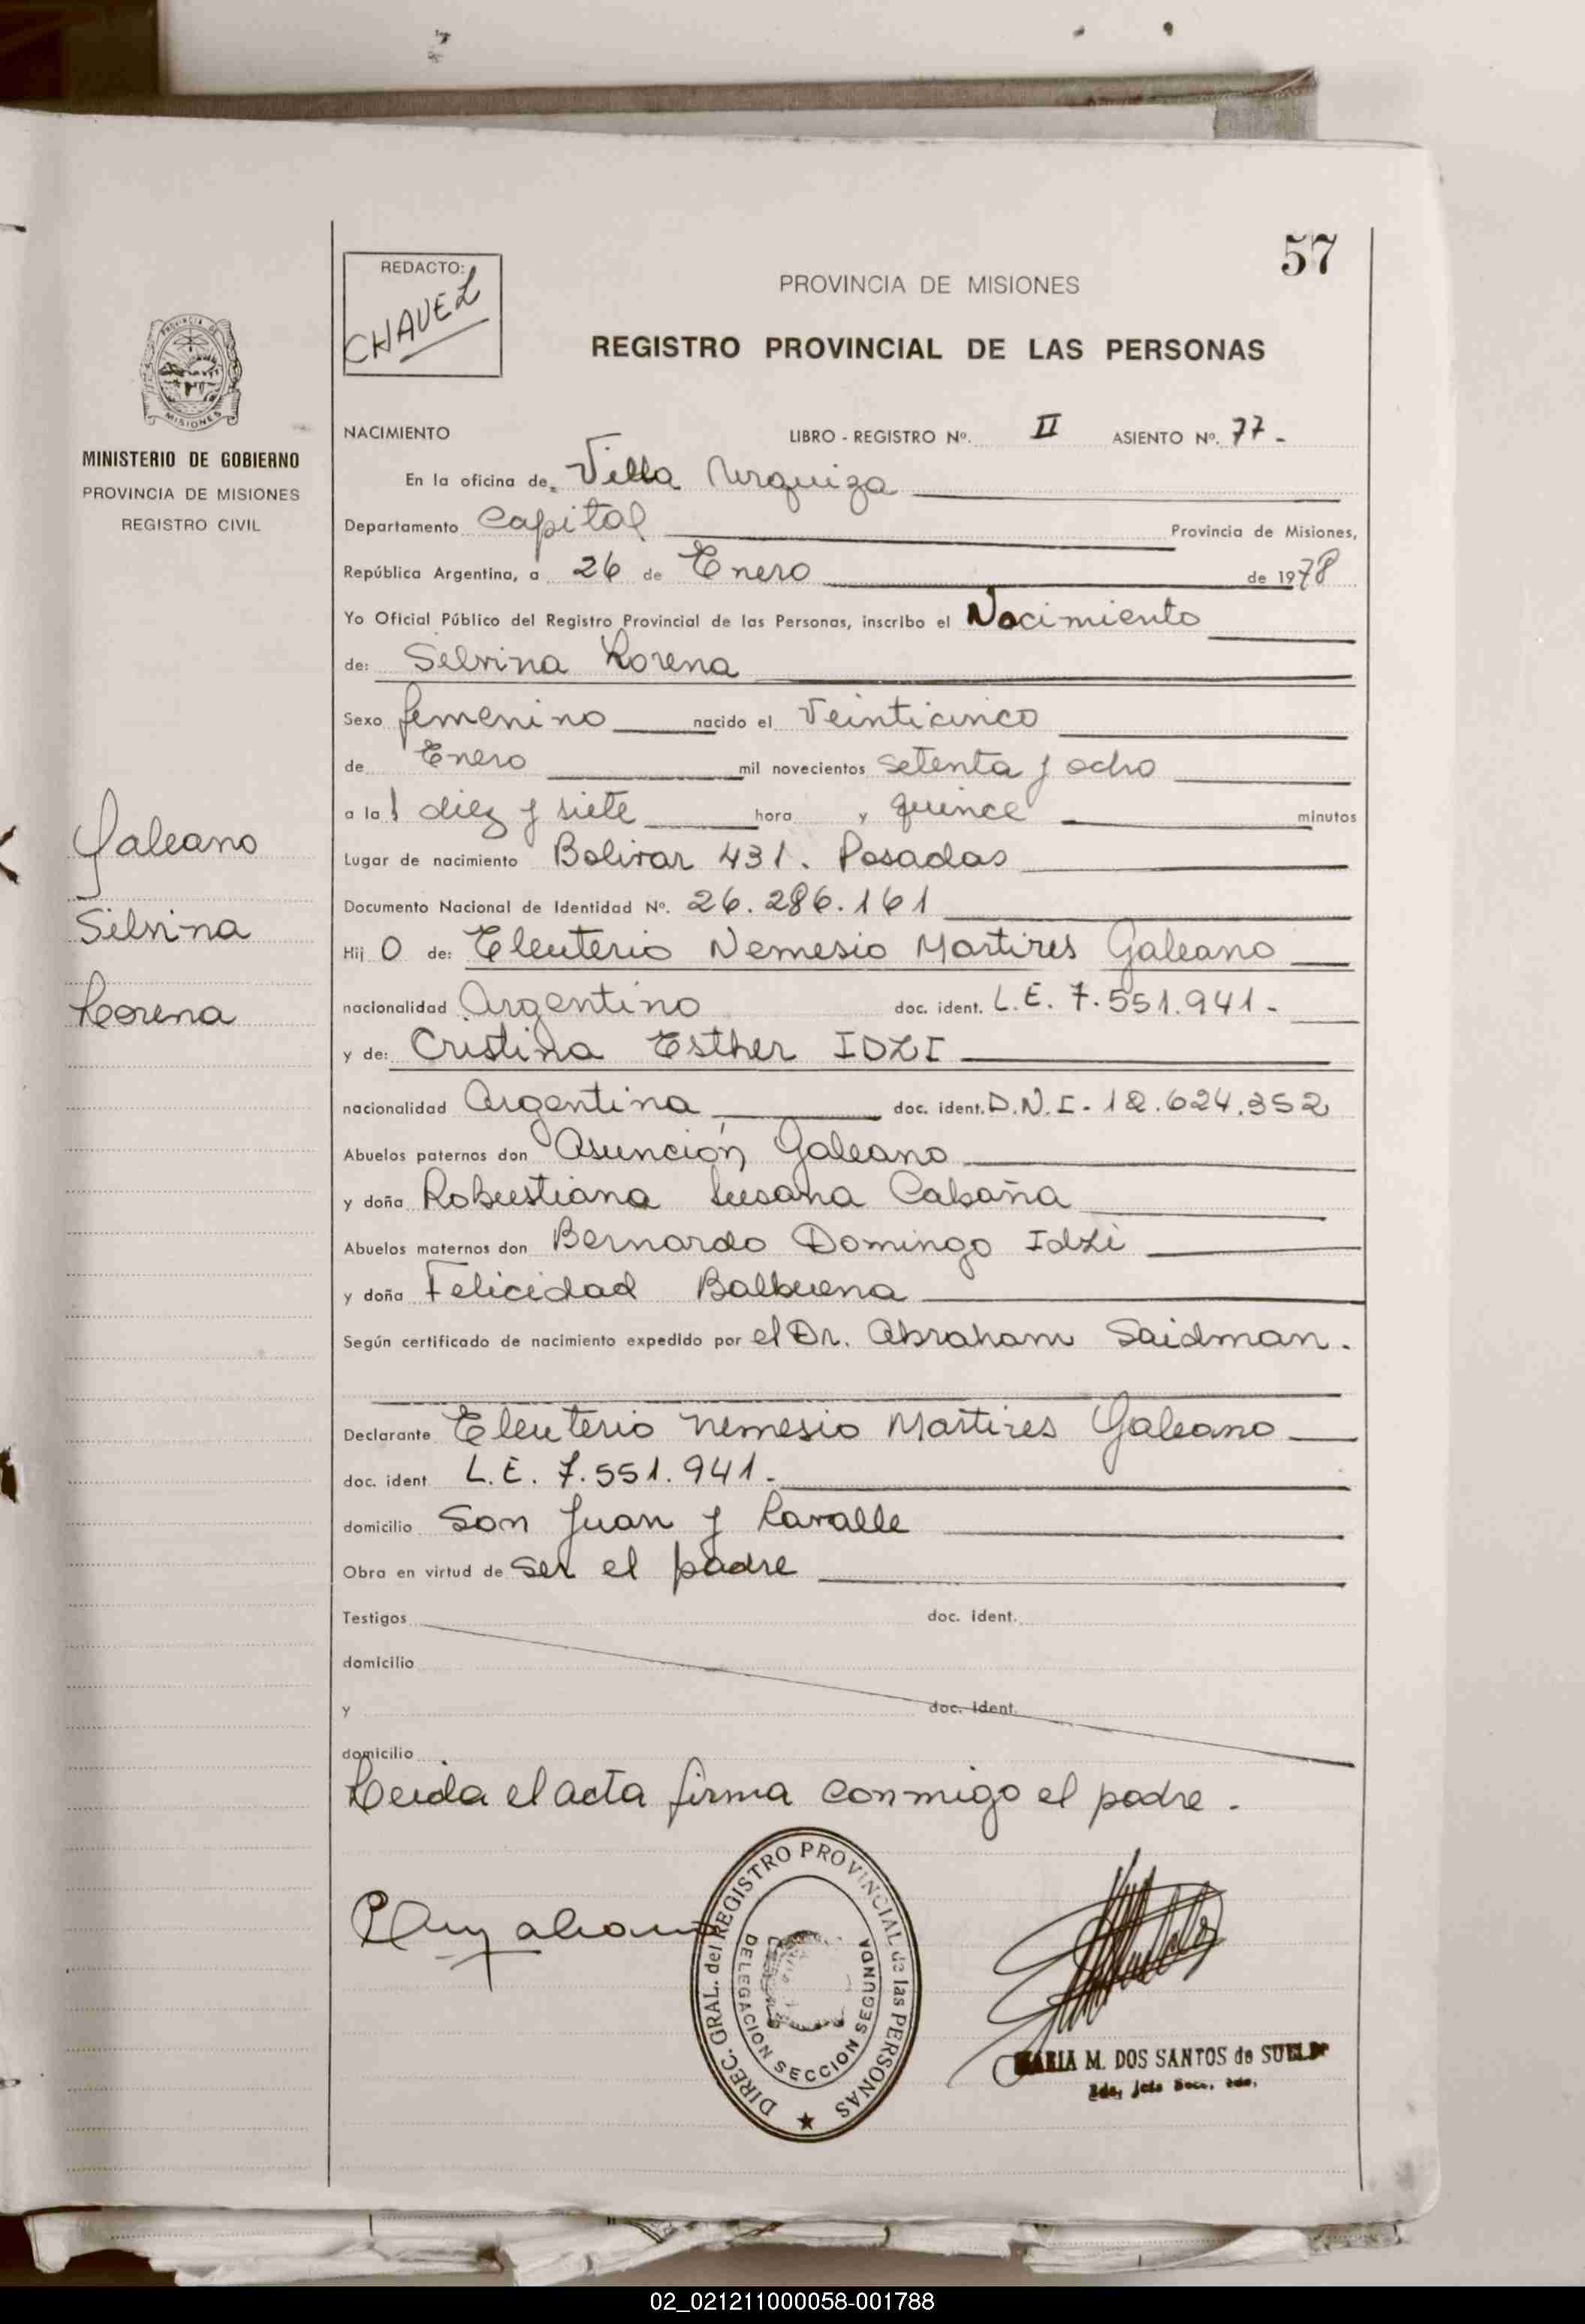 57
REDACTO:
CHAVEZ
PROVINCIA DE MISIONES
REGISTRO PROVINCIAL DE LAS PERSONAS
PROVINCIA DE
MISIONES
MINISTERIO DE GOBIERNO
PROVINCIA DE MISIONES
REGISTRO CIVIL
Galeano
Silvina
Lorena
NACIMIENTO LIBRO - REGISTRO Nº. II ASIENTO Nº. 77 -
En la oficina de Villa Urquiza
Departamento Capital Provincia de Misiones,
República Argentina, a 26 de Enero de 1978
Yo Oficial Público del Registro Provincial de las Personas, inscribo el Nacimiento
de: Silvina Lorena
Sexo femenino nacido el Veinticinco
de Enero mil novecientos setenta y ocho
a la s diez y siete hora y quince minutos
Lugar de nacimiento Bolivar 431. Posadas
Documento Nacional de Identidad Nº. 26.286.161
Hij O de: Eleuterio Nemesio Martires Galeano
nacionalidad Argentino doc. ident. L.E. 7.551.941-
y de: Cristina Esther IDZI
nacionalidad Argentina doc. ident. D.N.I. 12.624.352
Abuelos paternos don Asunción Galeano
y doña Robustiana Susana Cabaña
Abuelos maternos don Bernardo Domingo Idzi
y doña Felicidad Balbuena
Según certificado de nacimiento expedido por el Dr. Abraham Saidman.
Declarante Eleuterio Nemesio Martires Galeano
doc. ident L.E. 7.551.941.
domicilio San Juan y Lavalle
Obra en virtud de ser el padre
Testigos doc. ident.
domicilio
y doc. ident.
domicilio
Leida el acta firma conmigo el padre.
DIREC. GRAL. del REGISTRO PROVINCIAL de las PERSONAS
DELEGACION SECCION SEGUNDA
MARIA M. DOS SANTOS de
02_021211000058-001788